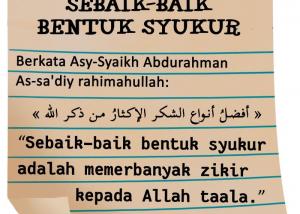 SEBAIK-BAIK
BENTUK SYUKUR
Berkata Asy-Syaikh Abdurahman
As-sa'diy rahimahullah:
« أفضلُ أنواع الشكر الإكثارُ من ذكر الله »
“Sebaik-baik bentuk syukur
adalah memerbanyak zikir
kepada Allah taala.”